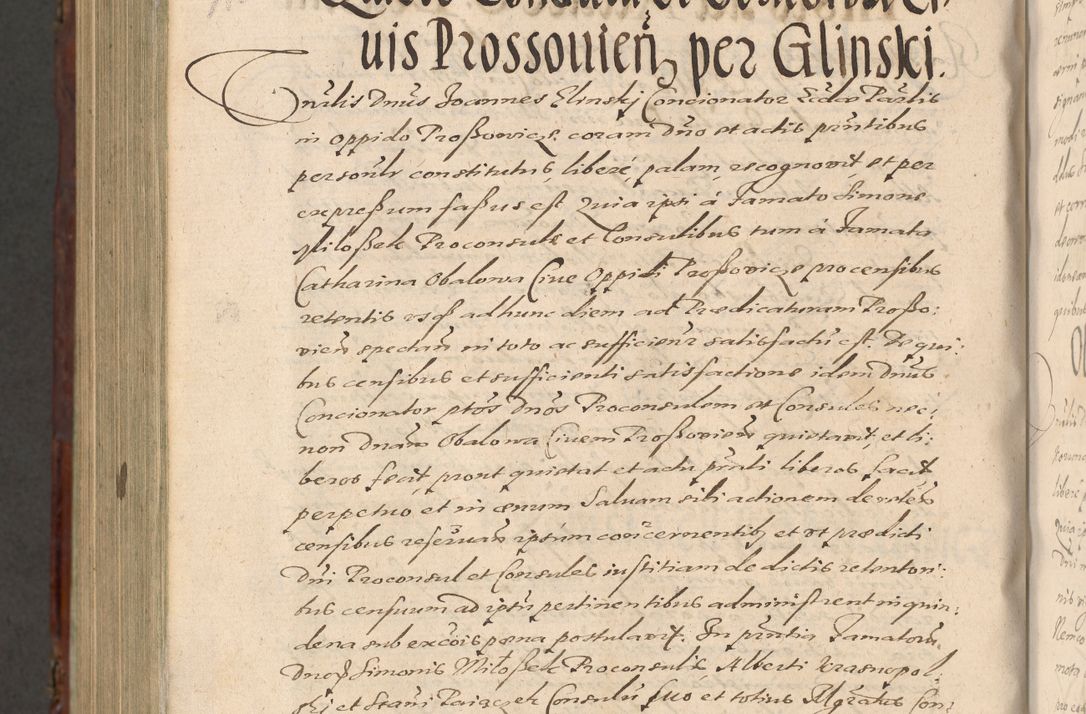 uis Prossouien̄ per Glinski.
Dnūs Joannes Glinskj Concionator Ecclae Parlis
in oppido Proßovicze coram Dno et actis prntibus
personlr constitutus, liberé, palam, recognovit et per
expreßum faßus est. Quia ipsi á Famato Simone
Miloßek Proconsule et Consulibus tum á Famata
Catharina Obalowa Cive Oppidi Proßovicze pro censibus
retentis usq ad hunc diem ad Prædicaturam Proßo:
vien spectan in toto ac sufficienr satisfactū est. De qui:
bus censibus et sufficienti satisfactione idem Dnus
Concionator ptos Dnos Proconsulem et Consules nec
non Dnam Obalowa Civem Proßovien quietavit, et li:
beros fecit, prout quietat et actu prnti liberos facit
perpetuo et in ævum Salvam sibi actionem de retes
censibus reservan ipsum concernentib et ut prædicti
Dni Proconsul et Consules iustitiam de dictis retentori:
bus censuum ad ipsū pertinentibus administrent in quin:
dena sub excōis pœna postulavit. In prntia Famatorū
Dnor Simonis Miloßek Proconsulis Alberti Krasnopol:
ski et Stani Consulū suo et totius Mgratus Con: